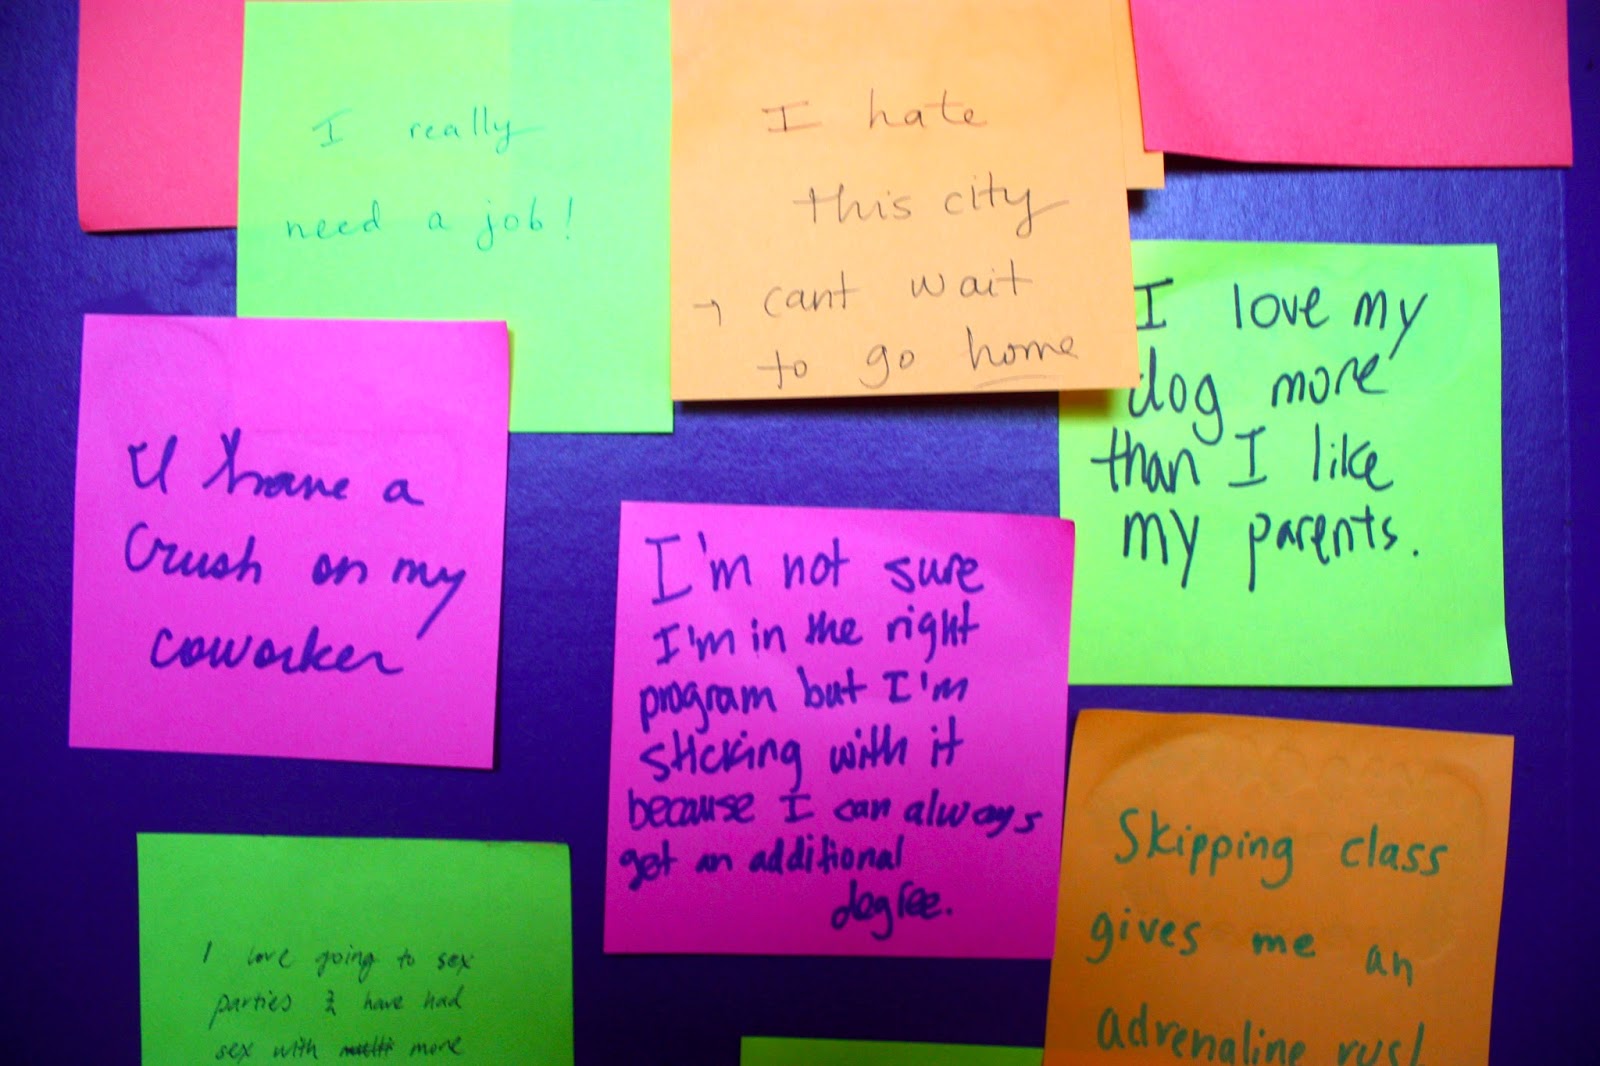 I really
need a job!
I hate
this city
→ cant wait
to go home
I love my
dog more
than I like
my parents.
I have a
crush on my
coworker
I'm not sure
I'm in the right
program but I'm
sticking with it
because I can always
get an additional
degree.
Skipping class
gives me an
adrenaline rus
I love going to sex
parties & have had
sex with more